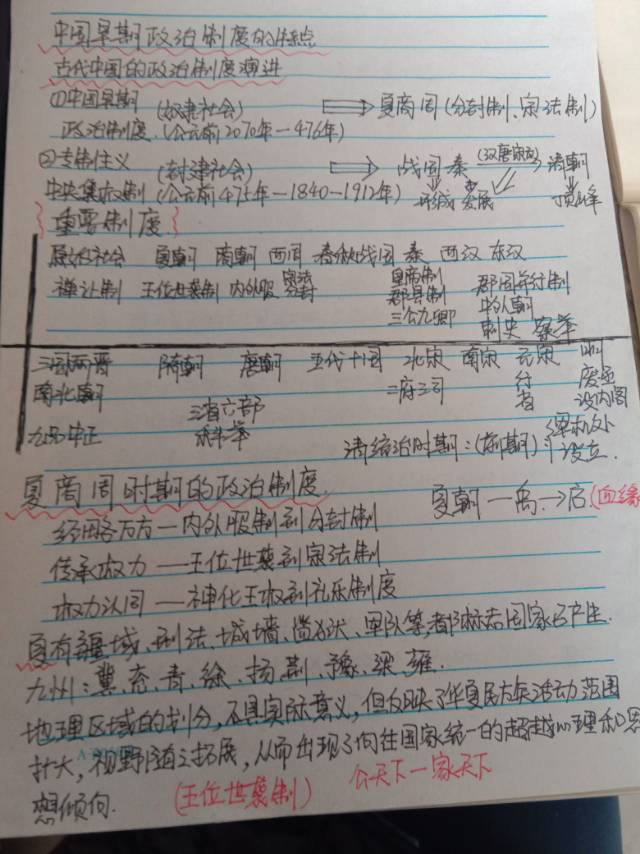 中国早期政治制度的特点
古代中国的政治制度演进
①中国早期 (奴隶社会) 夏商周(分封制、宗法制)
政治制度.(公元前2070年—476年)
②专制主义 (封建社会) 战国秦 (汉唐宋元) 清朝
中央集权制 (公元前475年—1840—1912年) 形成 发展 顶峰
重要制度
原始社会 夏朝 商朝 西周 春秋战国 秦 西汉 东汉
禅让制 王位世袭制 内外服 宗法 分封 皇帝制 郡县制 三公九卿 郡国并行制 中外朝 刺史 察举
三国两晋 隋朝 唐朝 五代十国 北宋 南宋 元 明
南北朝 三省六部 二府三司 行省 废丞 设内阁
九品中正 科举 清统治时期:(前期) 军机处 设立.
夏商周时期的政治制度 夏朝—禹→启(血缘
经略万方—内外服制到分封制
传承权力—王位世袭到宗法制
权力认同—神化王权到礼乐制度
夏有疆域、刑法、城墙、监狱、军队等,都标志国家已产生.
九州:冀、兖、青、徐、扬、荆、豫、梁、雍.
地理区域的划分,不具实际意义,但反映了华夏民族活动范围
扩大,视野随之拓展,从而出现了向往国家统一的超越心理和思
想倾向.
(王位世袭制) 公天下—家天下